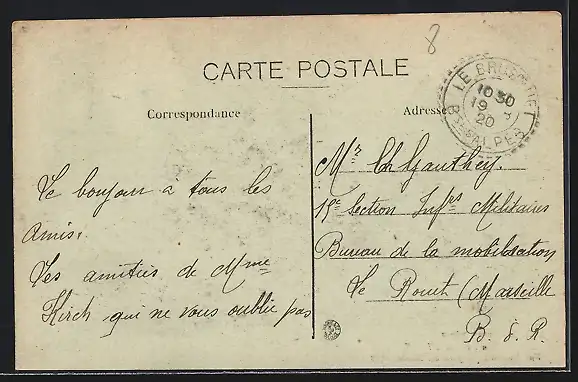 8
CARTE POSTALE
Correspondance
Adresse
LE BRUSQUET
10 30
19
20
Bses ALPES
Mr Ch Gauthey.
15e Section Infrs Militaires
Bureau de la mobilisation
Le Rouet (Marseille
B. d. R.
Le bonjour à tous les
Amis.
Les amitiés de Mme
Kirch qui ne vous oublie pas